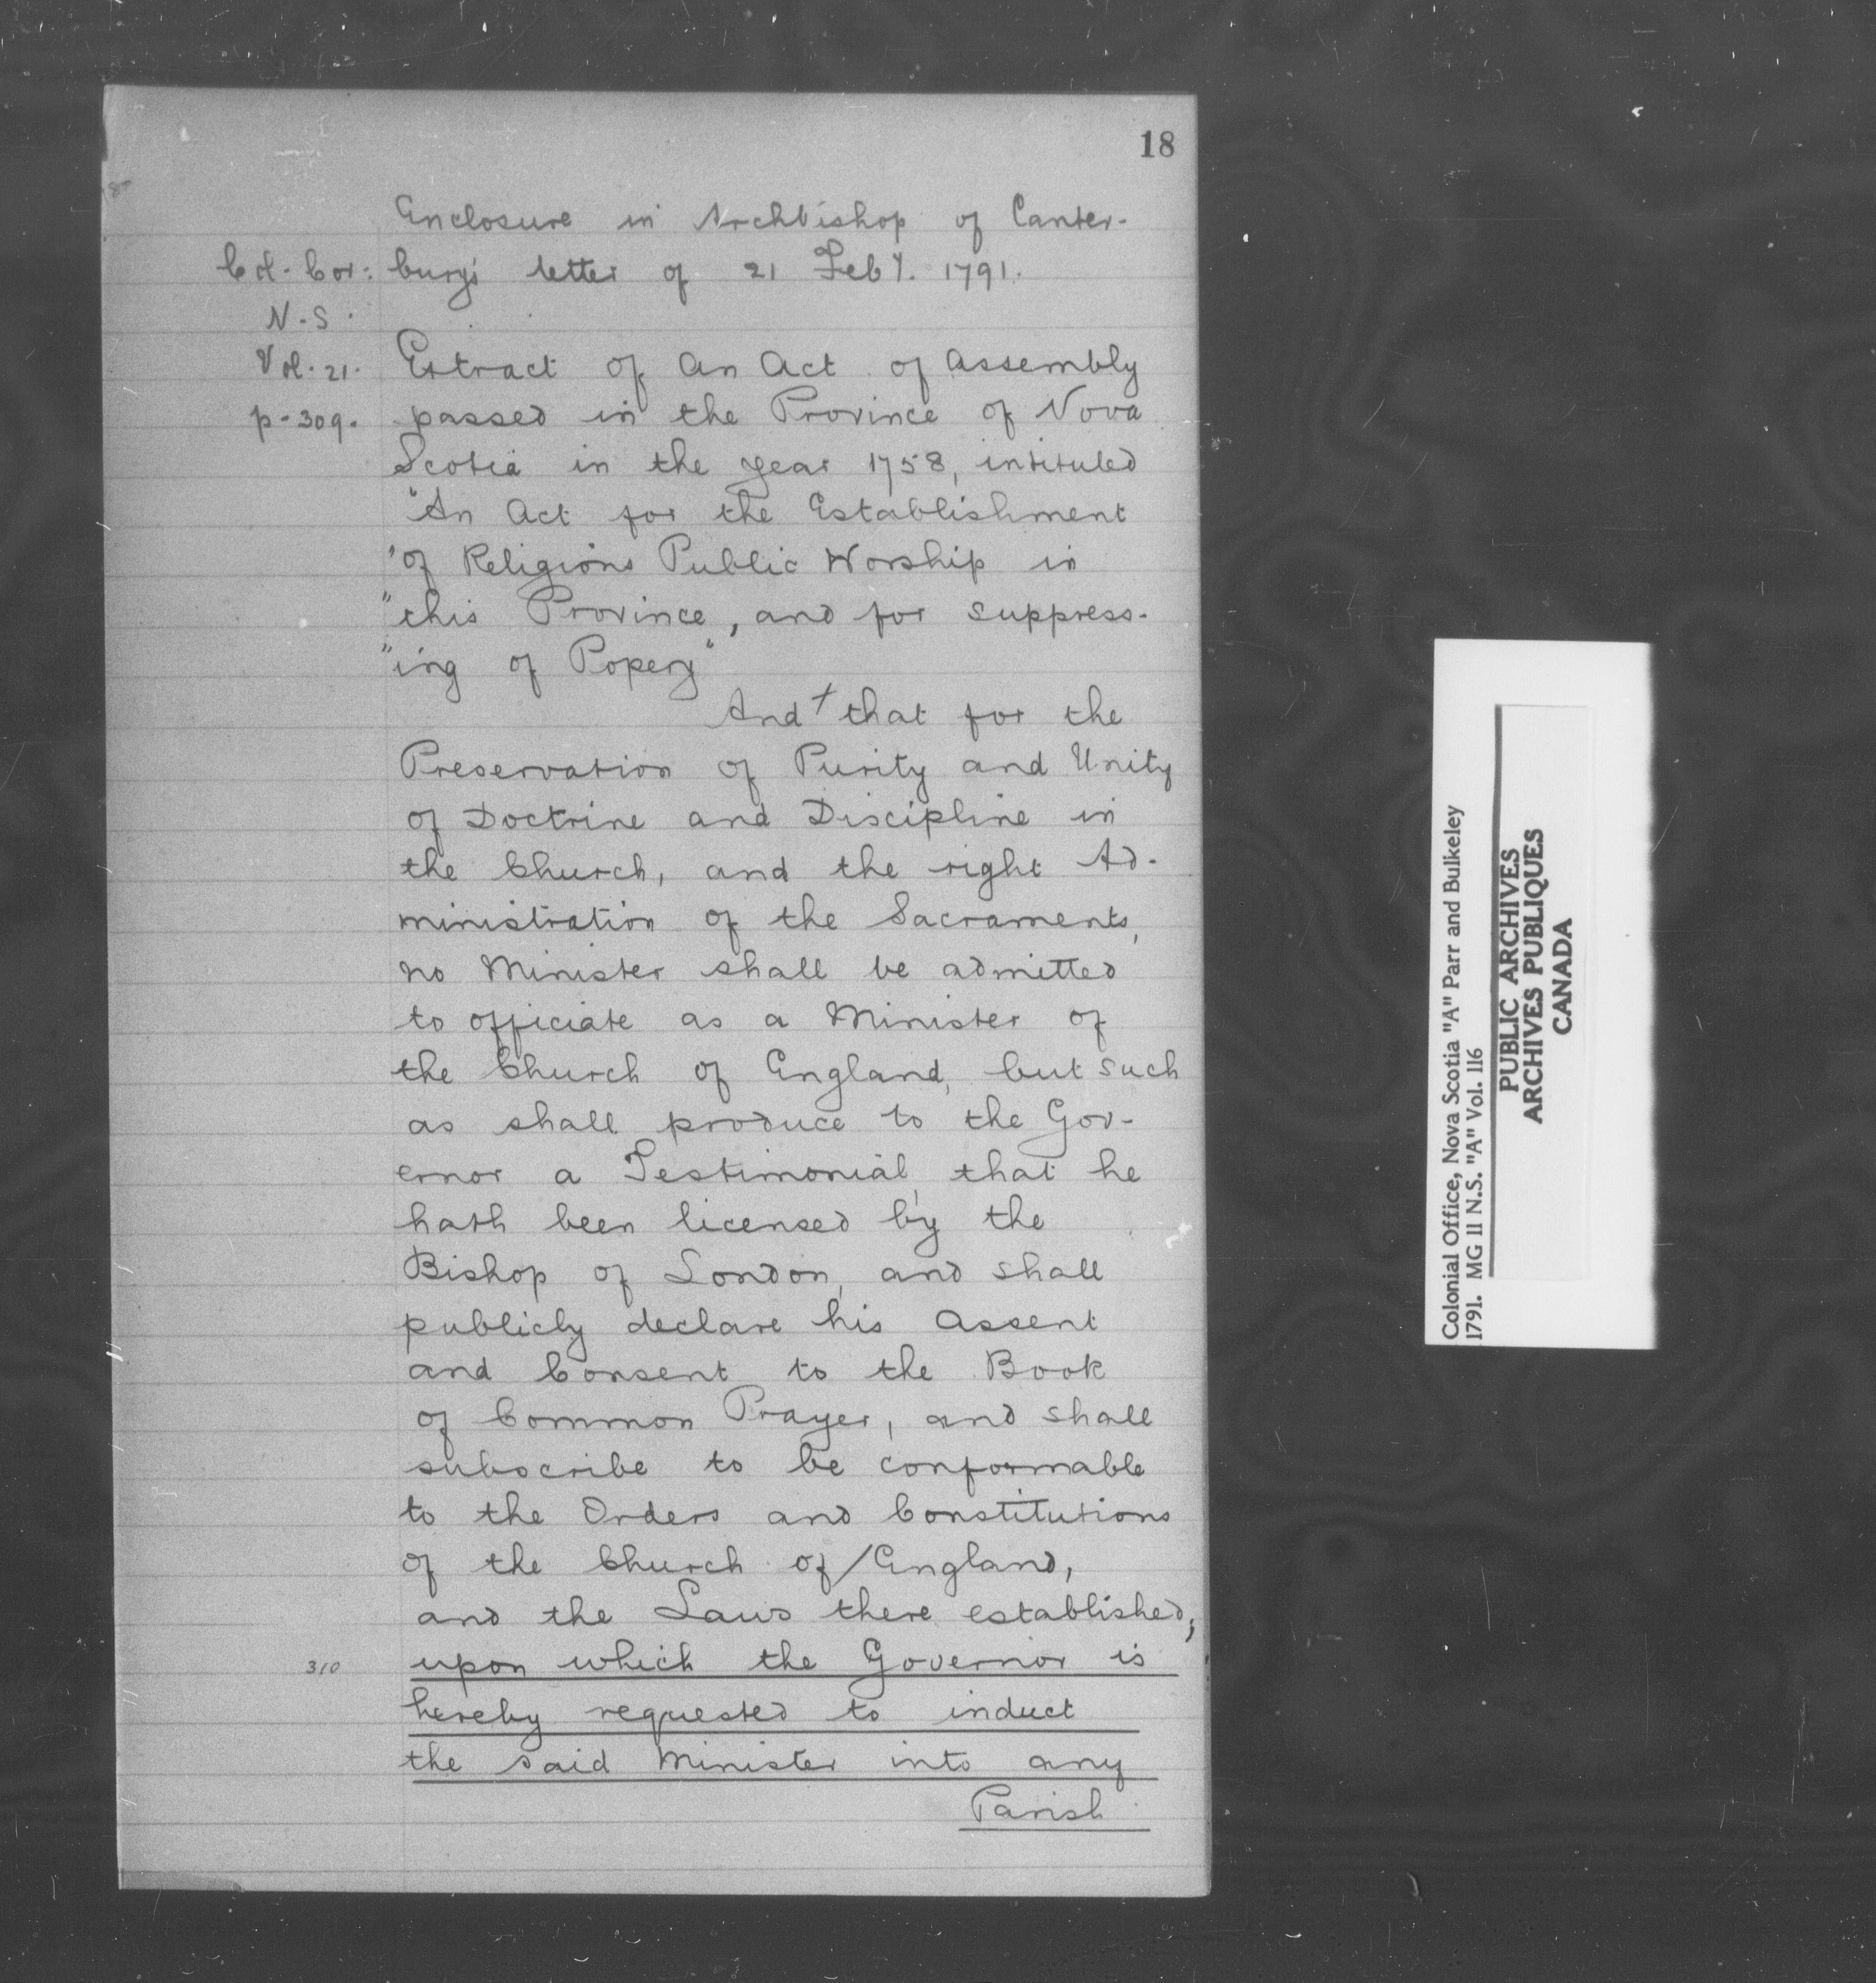 18
Enclosure in Archbishop of Canter-
bury's letter of 21 Feby. 1791.
Col. Cor:
N.S.
Vol. 21.
p. 309.
Extract of An Act of Assembly
passed in the Province of Nova
Scotia in the year 1758, intituled
"An Act for the Establishment
"of Religious Public Worship in
"this Province, and for suppress-
"ing of Popery"
And + that for the
Preservation of Purity and Unity
of Doctrine and Discipline in
the Church, and the right Ad-
ministration of the Sacraments,
no Minister shall be admitted
to officiate as a Minister of
the Church of England, but such
as shall produce to the Gov-
ernor a Testimonial, that he
hath been licensed by the
Bishop of London, and shall
publicly declare his Assent
and Consent to the Book
of Common Prayer, and shall
subscribe to be conformable
to the Orders and Constitutions
of the Church of / England,
and the Laws there established;
310
upon which the Governor is
hereby requested to induct
the said Minister into any
Parish
Colonial Office, Nova Scotia "A" Parr and Bulkeley
1791. MG 11 N.S. "A" Vol. 116
PUBLIC ARCHIVES
ARCHIVES PUBLIQUES
CANADA